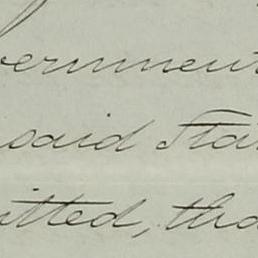 vernment
said Sta
itted, tha